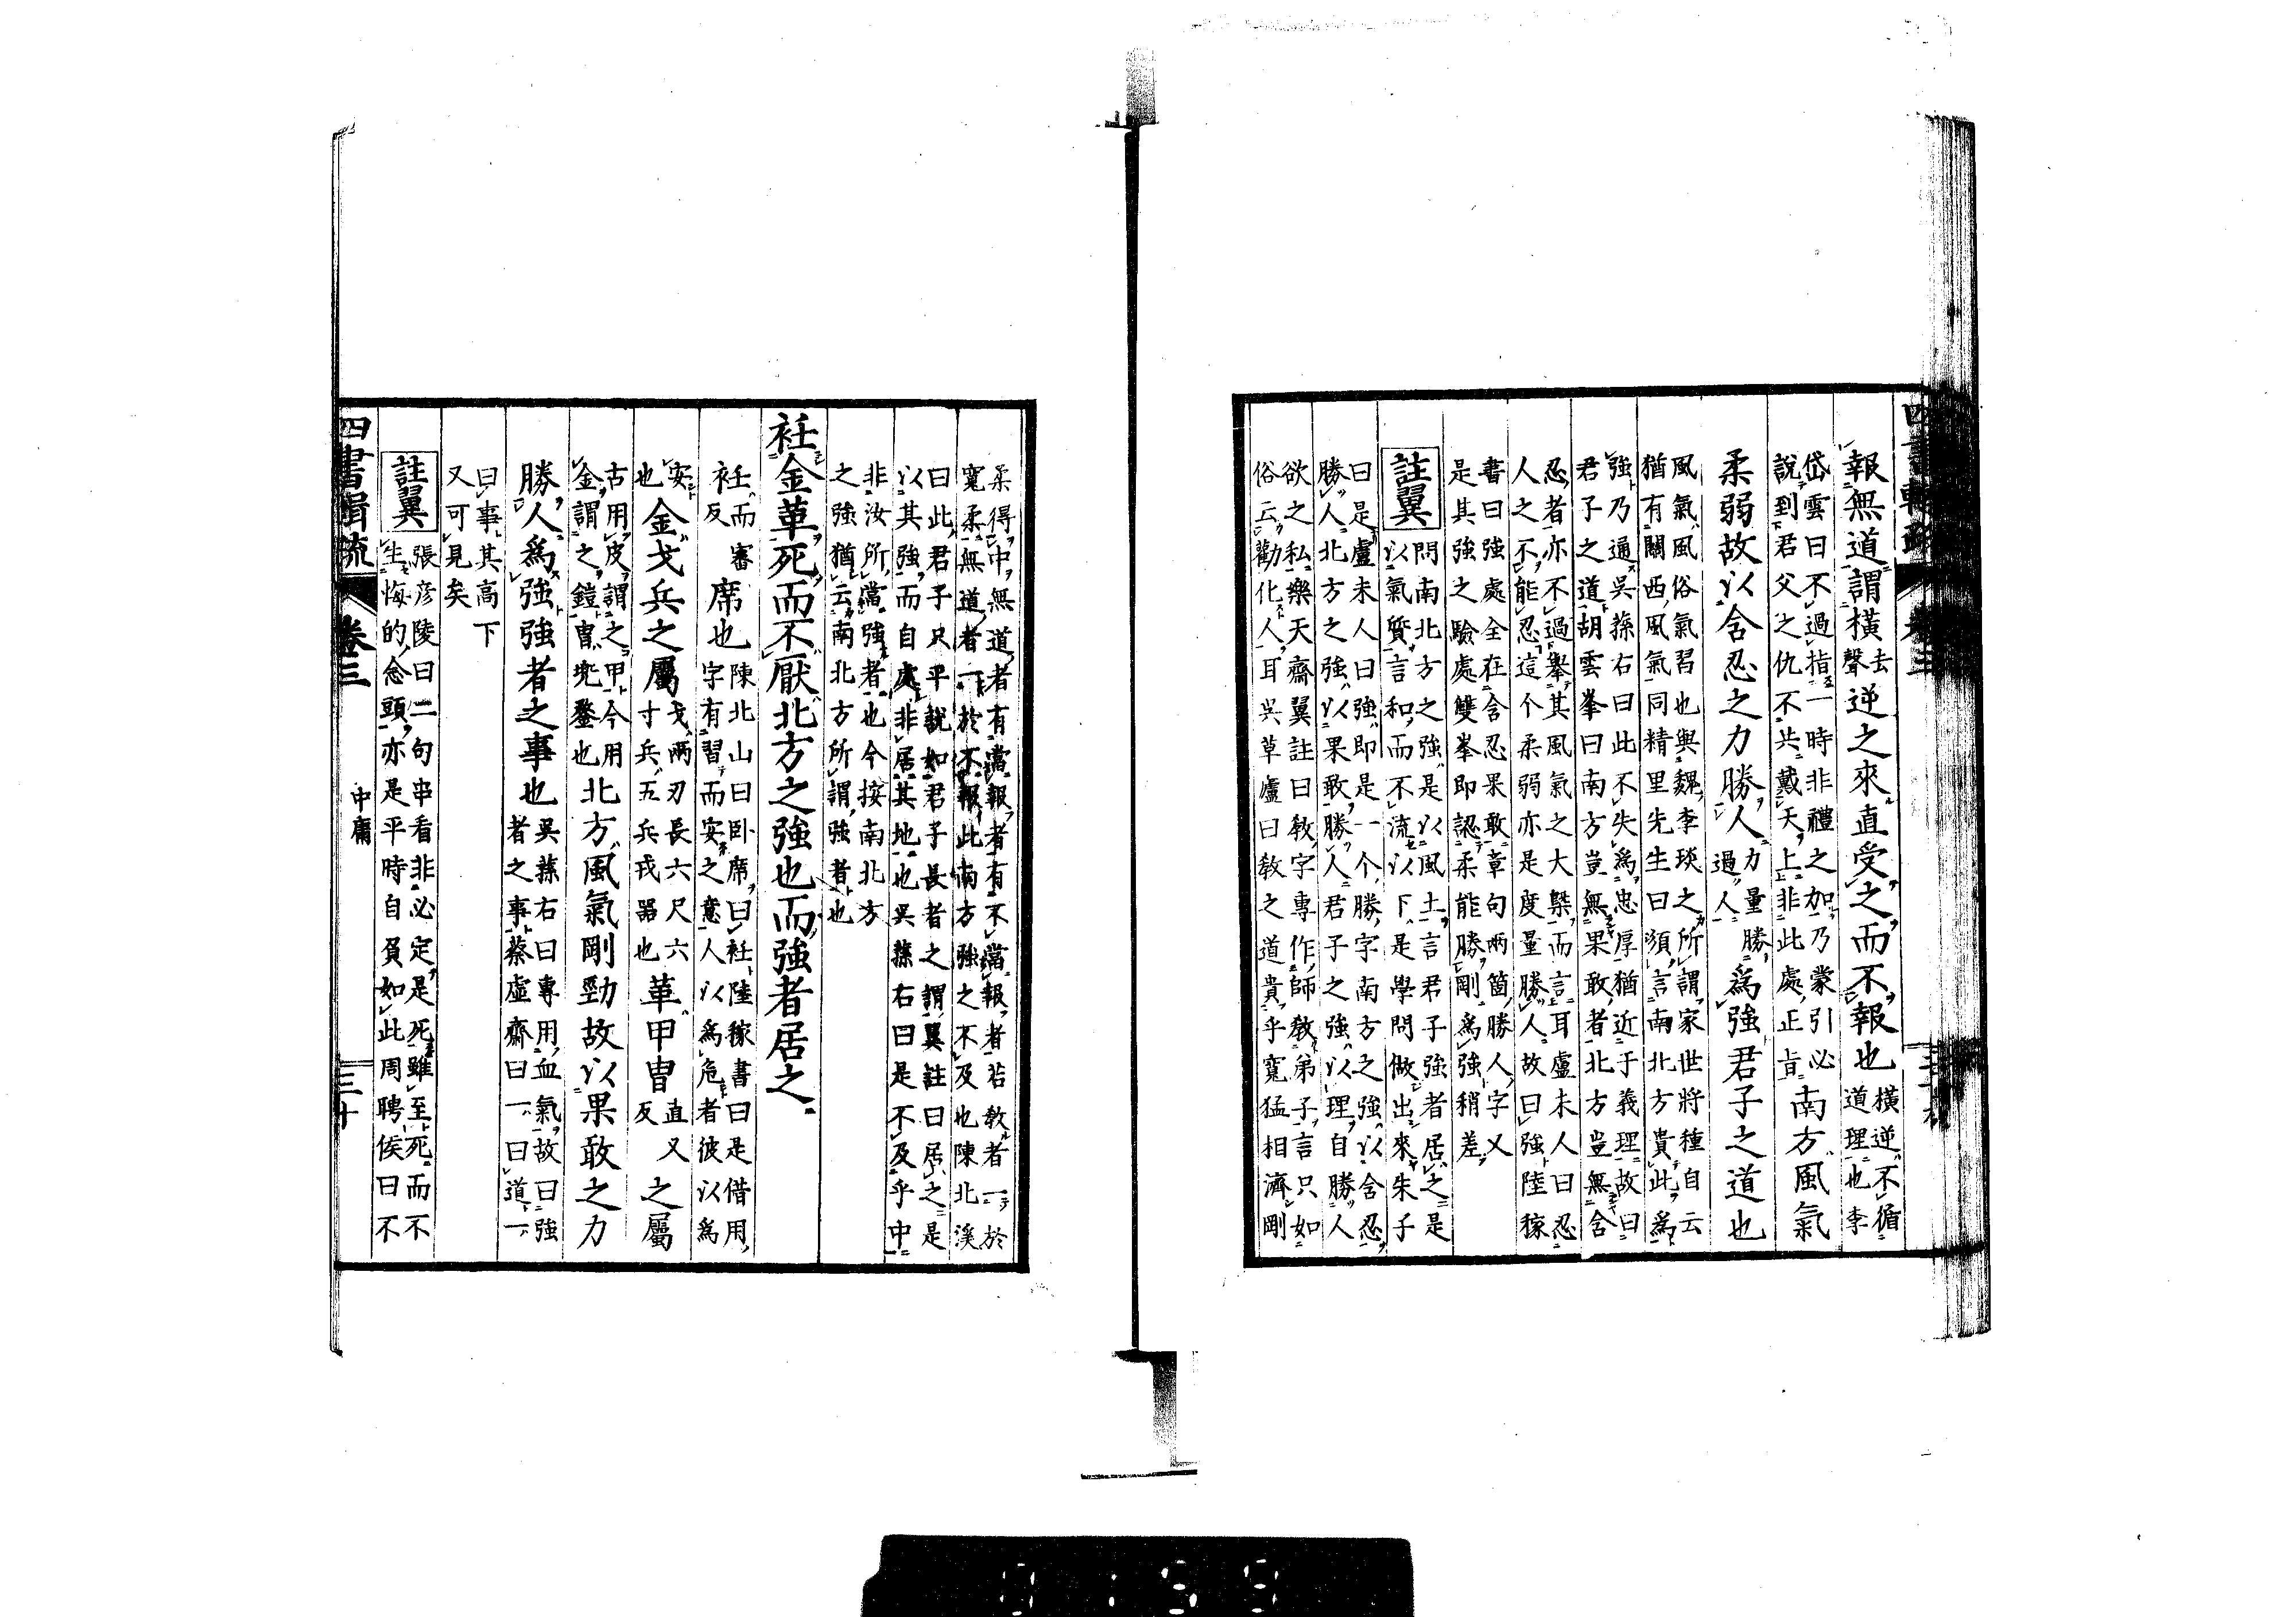 報無道謂橫去聲逆之來直受之而不報也橫逆不循道理也李
岱雲曰不過指一時非禮之加乃蒙引必
說到君父之仇不共戴天上非此處正旨南方風氣
柔弱故以含忍之力勝人力量勝過人為強君子之道也
風氣風俗氣習也與魏李琰之所謂家世將種自云
猶有關西風氣同精里先生曰須言南北方貴此為
強乃通吳蓀右曰此不失為忠厚猶近于義理故曰
君子之道胡雲峯曰南方豈無果敢者北方豈無含
忍者亦不過舉其風氣之大槩而言耳盧未人曰忍
人之不能忍這个柔弱亦是度量勝人故曰強陸稼
書曰強處全在含忍果敢章句兩箇勝人字乂
是其強之驗處雙峯即認柔能勝剛為強稍差
註翼問南北方之強是以風土言君子強者居之是
以氣質言和而不流以下是學問做出來朱子
曰是盧未人曰強即是一个勝字南方之強以含忍
勝人北方之強以果敢勝人君子之強以理自勝人
欲之私樂天齋翼註曰教字專作師教弟子言只如
俗云勸化人耳吳草廬曰教之道貴乎寬猛相濟剛
柔得中無道者有當報者有不當報者若教者一於
寬柔無道者一於不報此南方強之不及也陳北溪
曰此君子只平說如君子長者之謂翼註曰居之是
以其強而自處非居其地也吳蓀右曰是不及乎中
非汝所當強者也今按南北方
之強猶云南北方所謂強者也
衽金革死而不厭北方之強也而強者居之
衽而審反席也陳北山曰卧席曰衽陸稼書曰是借用
字有習而安之意人以為危者彼以為
安也金戈兵之屬戈兩刃長六尺六寸兵五兵戎器也革甲冑直又反之屬
古用皮謂之甲今用
金謂之鎧冑兜鍪也北方風氣剛勁故以果敢之力
勝人為強強者之事也吳蓀右曰專用血氣故曰強
者之事蔡虛齋曰一曰道一
曰事其高下
又可見矣
註翼張彦陵曰二句串看非必定是死雖至死而不
生悔的念頭亦是平時自負如此周聘侯曰不
四書輯疏
卷三
中庸
三十